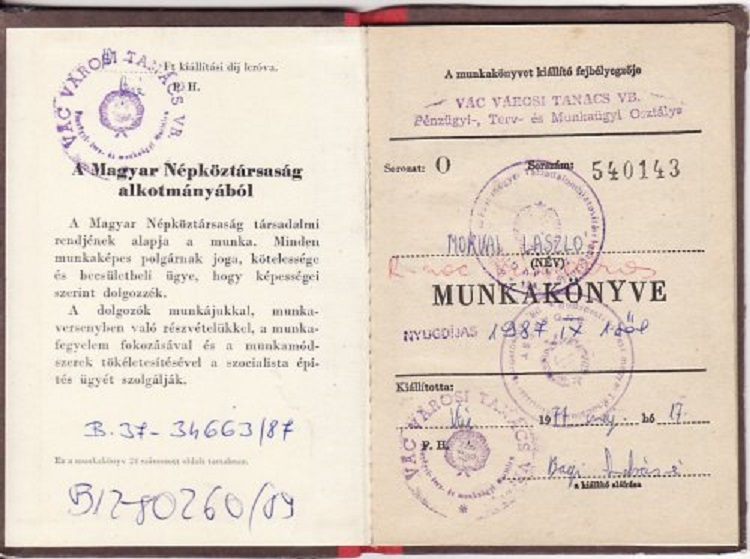 VÁC VÁROSI TANÁCS VB.
Pénzügyi-, terv- és munkaügyi
Ft kiállítási díj leróva.
P. H.
A Magyar Népköztársaság
alkotmányából
A Magyar Népköztársaság társadalmi
rendjének alapja a munka. Minden
munkaképes polgárnak joga, kötelessége
és becsületbeli ügye, hogy képességei
szerint dolgozzék.
A dolgozók munkájukkal, munka-
versenyben való részvételükkel, a munka-
fegyelem fokozásával és a munkamód-
szerek tökéletesítésével a szocialista épí-
tés ügyét szolgálják.
B.37-34663/87
Ez a munkakönyv 28 számozott oldalt tartalmaz.
B1280260/89
A munkakönyvet kiállító fejbélyegzője
VÁC VÁROSI TANÁCS VB.
Pénzügyi-, Terv- és Munkaügyi Osztálya
Sorozat: O Sorszám: 540143
MORVAI LÁSZLÓ
(NÉV)
MUNKAKÖNYVE
NYUGDÍJAS 1987 IX 1-től
Kiállította:
Vác 1977 máj. hó 17.
P. H.
VÁC VÁROSI TANÁCS
a kiállító aláírása